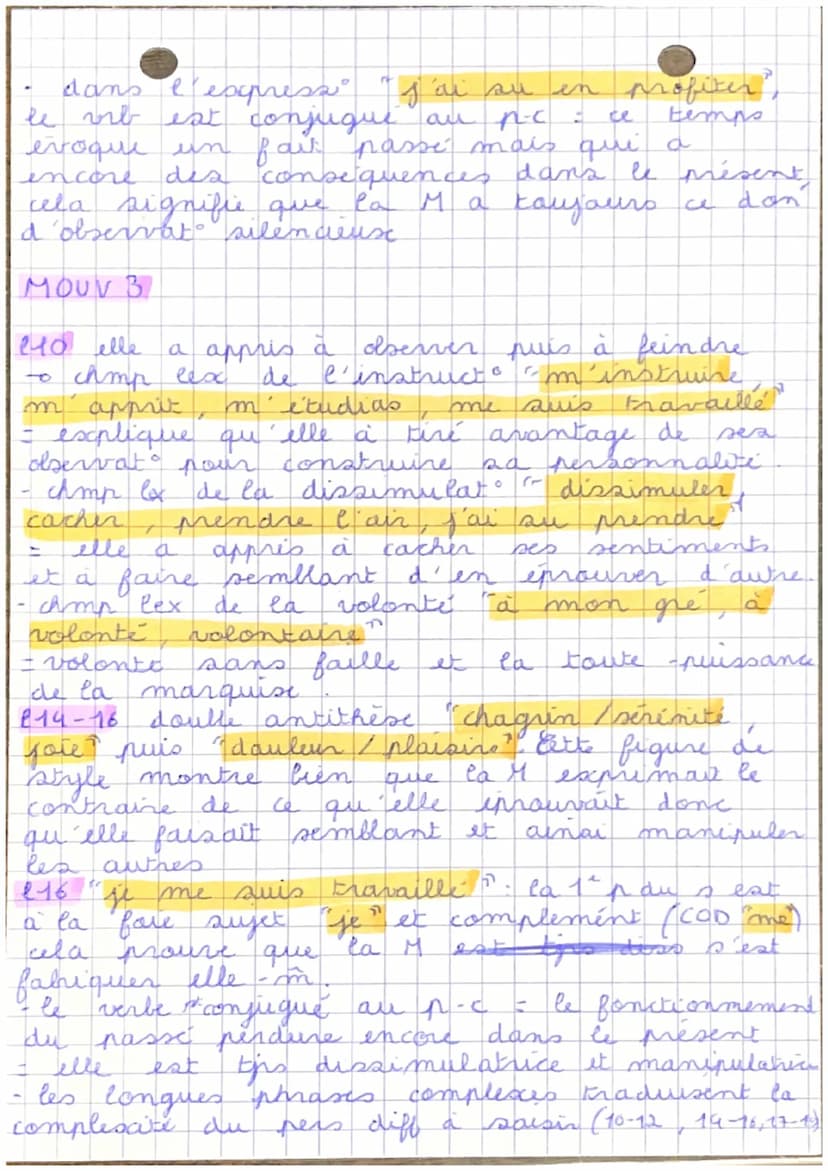 - dans l'express° "j'ai su en profiter",
le vrb est conjugué au p-c : ce temps
évoque un fait passé mais qui a
encore des conséquences dans le présent,
cela signifie que la M a toujours ce don
d'observat° silencieuse
MOUV 3
l10 elle a appris à observer puis à feindre
→ chmp lex de l'instruct° "m'instruire,
m'apprit, m'étudias, me suis travaillé"
= explique qu'elle à tiré avantage de ses
observat° pour construire sa personnalité.
- chmp lex de la dissimulat° "dissimuler,
cacher, prendre l'air, j'ai su prendre"
= elle a appris à cacher ses sentiments
et à faire semblant d'en éprouver d'autre.
- chmp lex de la volonté "à mon gré, à
volonté, volontaire"
= volonté sans faille et la toute-puissance
de la marquise.
l14-16 double antithèse "chagrin / sérénité,
joie" puis "douleur / plaisir". Cette figure de
style montre bien que la M exprimait le
contraire de ce qu'elle éprouvait donc
qu'elle faisait semblant et ainsi manipuler
les autres
l16 "je me suis travaillé" : la 1e p du s est
à la fois sujet "je" et complément (COD "me")
cela prouve que la M s'est
fabriquer elle-m̂.
- le verbe conjugué au p-c = le fonctionnement
du passé perdure encore dans le présent
= elle est tjrs dissimulatrice et manipulatrice
- les longues phrases complexes traduisent la
complexité du pers diff à saisir (10-12, 14-16, 17-19)